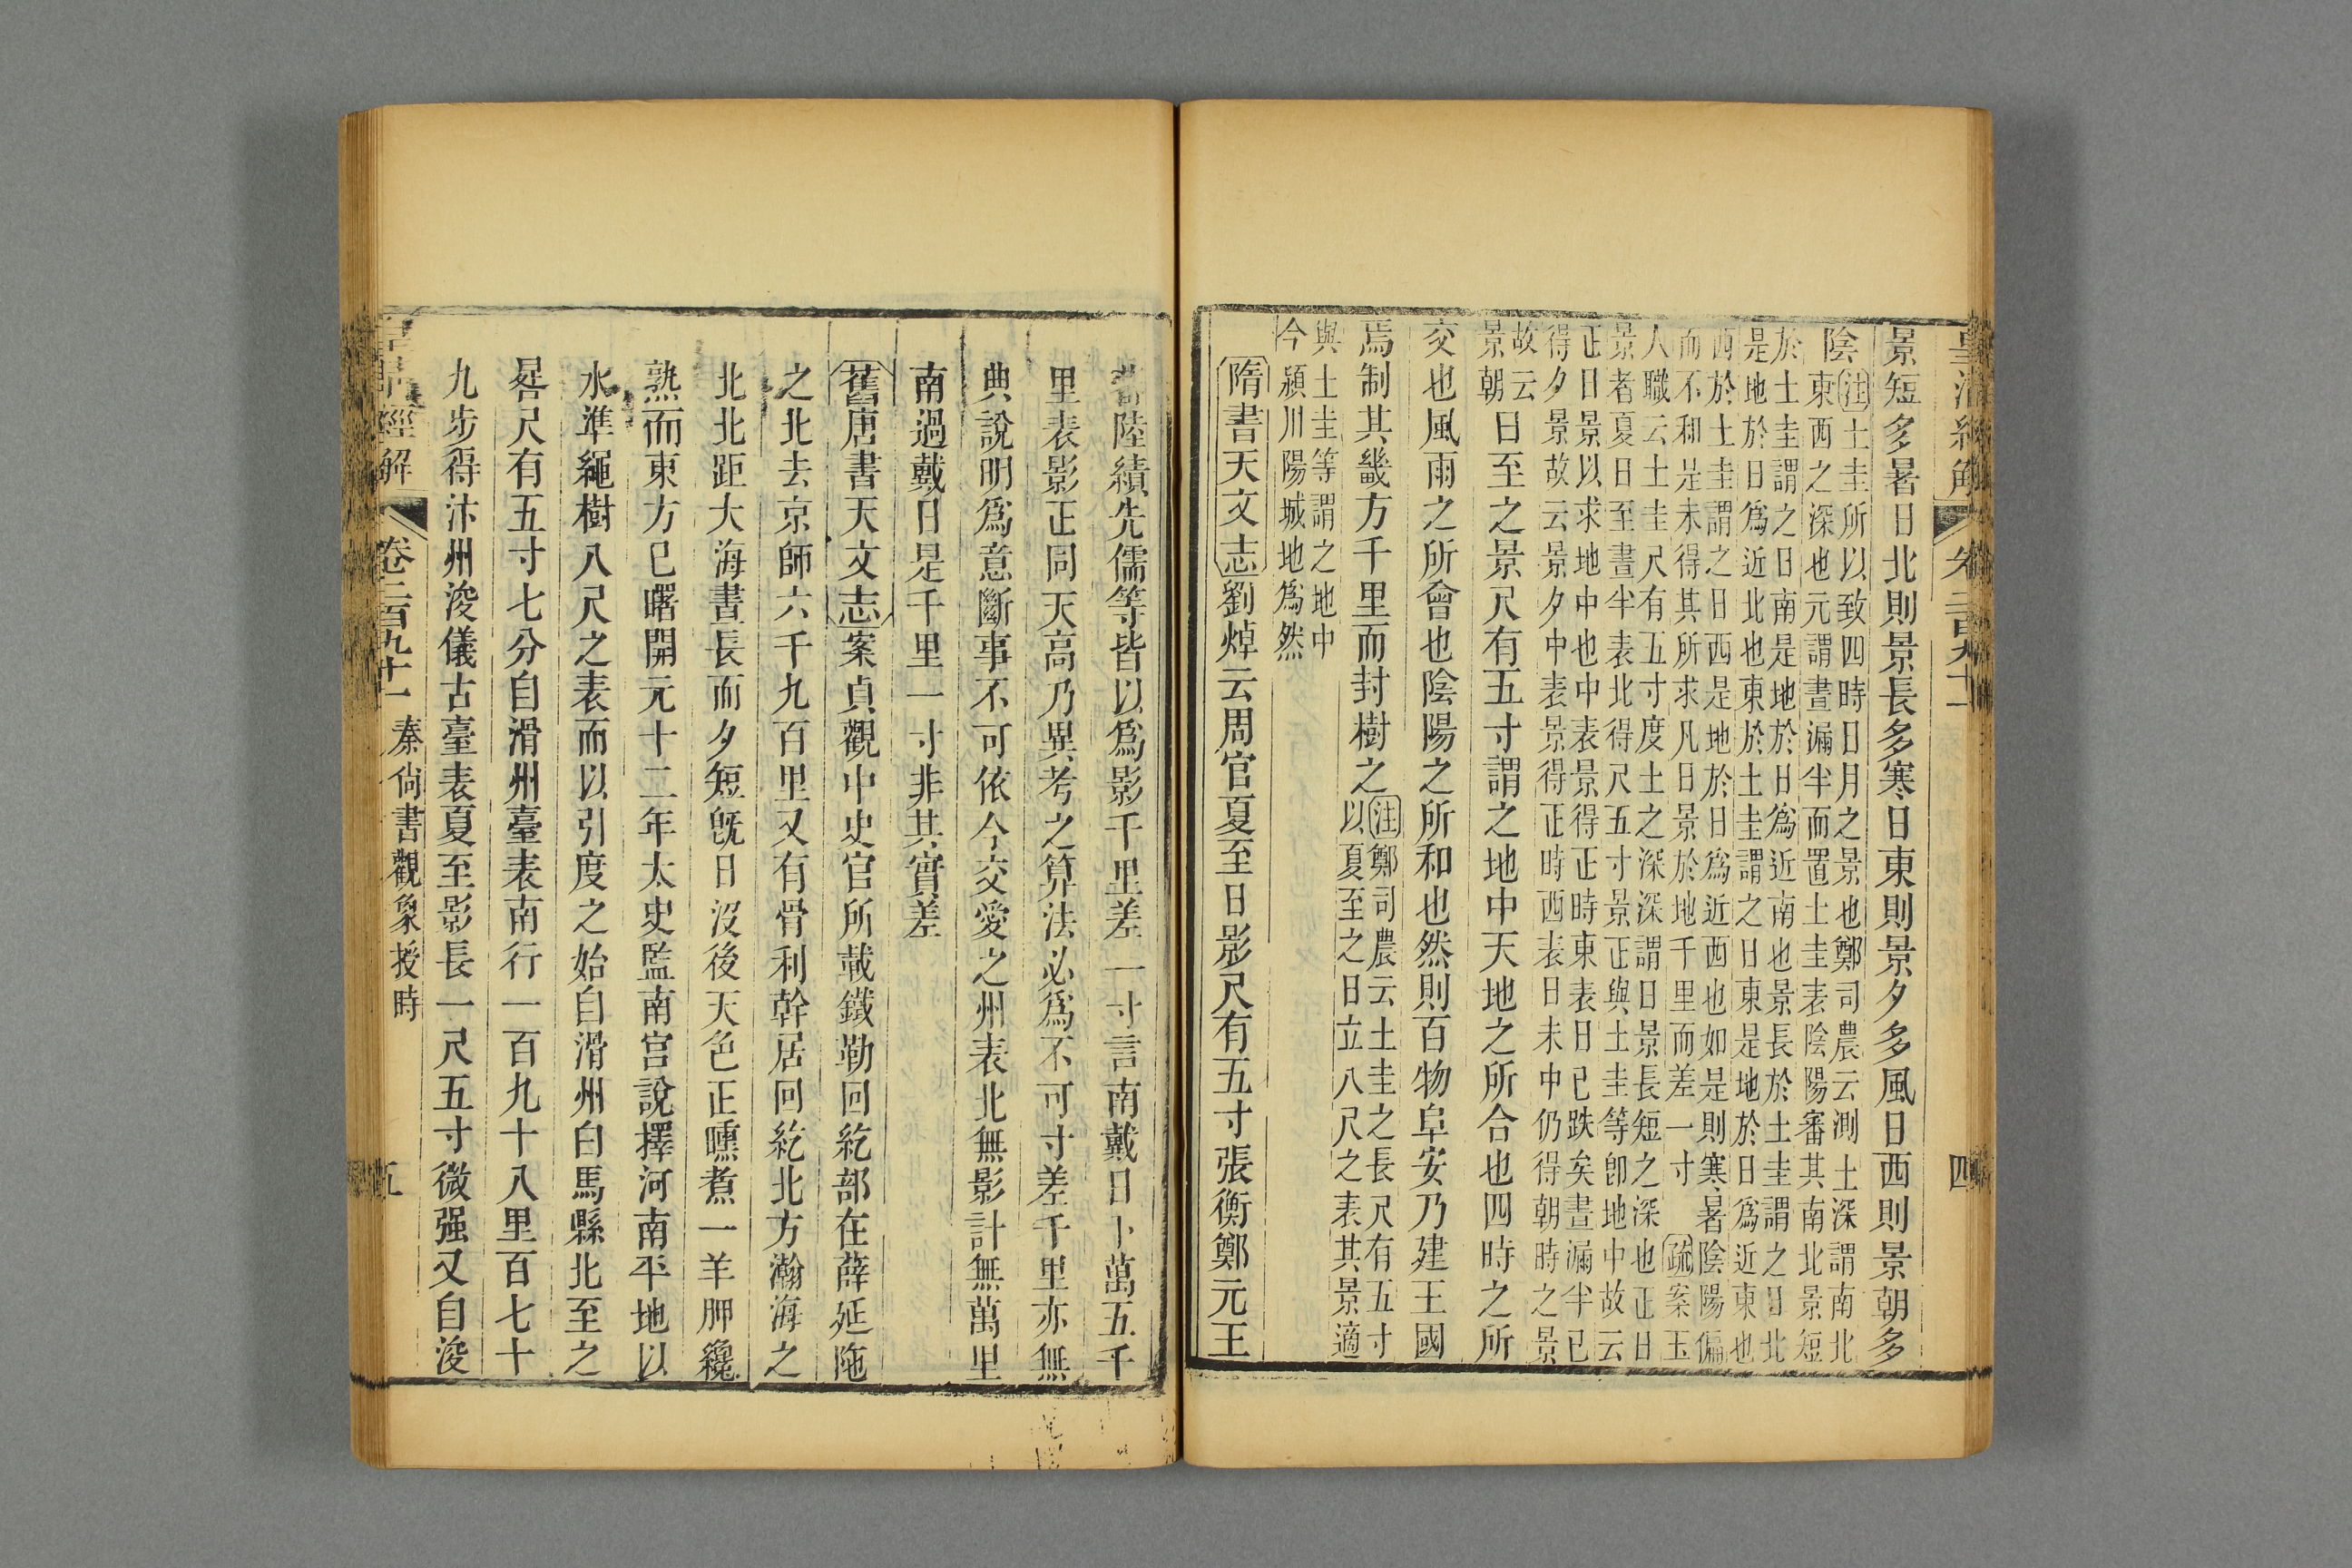 皇清經解 卷二百九十一 四
景短多暑日北則景長多寒日東則景夕多風日西則景朝多
陰
注土圭所以致四時日月之景也鄭司農云測土深謂南北
東西之深也元謂晝漏半而置土圭表陰陽審其南北景短
於土圭謂之日南是地於日為近南也景長於土圭謂之日北
是地於日為近北也東於土圭謂之日東是地於日為近東也
西於土圭謂之日西是地於日為近西也如是則寒暑陰陽偏
而不和是未得其所求凡日景於地千里而差一寸 疏案玉
人職云土圭尺有五寸度土之深深謂日景長短之深也正日
景者夏日至晝半表北得尺五寸景正與土圭等卽地中故云
正日景以求地中也中表景得正時東表日已跌矣晝漏半已
得夕景故云景夕中表景得正時西表日未中仍得朝時之景
故云
景朝
日至之景尺有五寸謂之地中天地之所合也四時之所
交也風雨之所會也陰陽之所和也然則百物阜安乃建王國
焉制其畿方千里而封樹之
注鄭司農云土圭之長尺有五寸
以夏至之日立八尺之表其景適
與土圭等謂之地中
今潁川陽城地為然
隋書天文志劉焯云周官夏至日影尺有五寸張衡鄭元王
蕃陸績先儒等皆以爲影千里差一寸言南戴日下萬五千
里表影正同天高乃異考之算法必爲不可寸差千里亦無
典說明爲意斷事不可依今交愛之州表北無影計無萬里
南過戴日是千里一寸非其實差
舊唐書天文志案貞觀中史官所載鐵勒回紇部在薛延陁
之北去京師六千九百里又有骨利幹居回紇北方瀚海之
北北距大海晝長而夕短旣日沒後天色正曛煮一羊胛纔
熟而東方已曙開元十二年太史監南宮說擇河南平地以
水準繩樹八尺之表而以引度之始自滑州白馬縣北至之
晷尺有五寸七分自滑州臺表南行一百九十八里百七十
九步得汴州浚儀古臺表夏至影長一尺五寸微强又自浚
皇清經解 卷二百九十一 秦尙書觀象授時 五